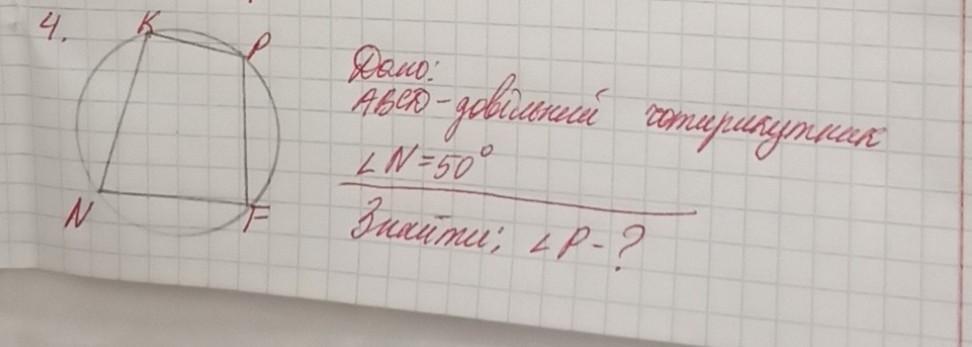 4.
K
P
N
F
Дано:
ABCD - довільний чотирикутник
∠N=50°
Знайти: ∠P-?